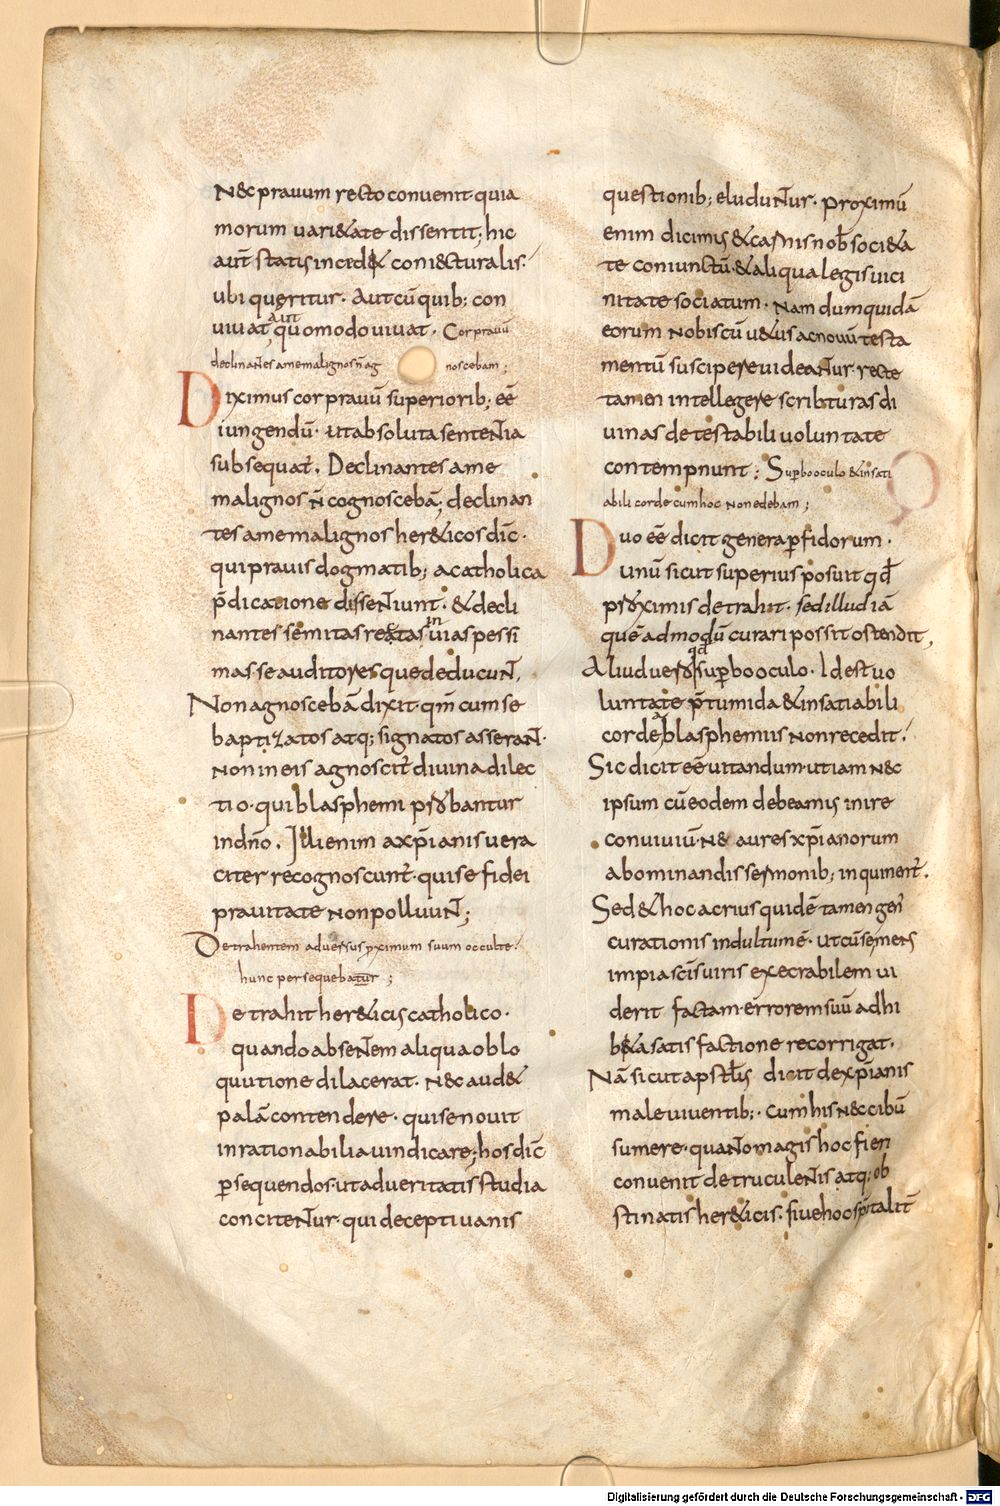 N& prauum recto conuenit· quia
morum uari&ate dissentit; hic
aut̄ statis inced& coni&turalis·
ubi queritur· Aut cū quib; con
uiuat, aut quomodo uiuat· Cor prauū
declinaNtes a me malignos n̄ ag noscebam;
Diximus cor prauū superiorib; eē
iungendū· ut absoluta senteNtia
subsequat̄. Declinantes a me
malignos n̄ cognoscebā; declinan
tes a me malignos her&icos dic̄·
qui prauis dogmatib; a catholica
p̄dicatione disseNtiunt· & decli
nantes semitas rectas in uias pessi
mas se auditores que deducuNt,
Non agnoscebā dixit· qm̄ cum se
baptizatos atq; signatos asseraNt·
Non in eis agnoscit̄ diuina dilec
tio· qui blasphemi probantur
in dn̄o. Illi enim a xp̄ianis uera
citer recognoscunt̄· qui se fidei
prauitate non polluuNt;
Detrahentem aduersus proximum suum occulte·
hunc persequebatur;
Detrahit her&icis catholico·
quando abseNtem aliqua oblo
quutione dilacerat· N& aud&
palā contendere· qui se nouit
inrationabilia uindicare; hos dic̄
p̄sequendos· ut ad ueritatis studia
conciteNtur· qui decepti uanis
questionib; eluduNtur· proximū
enim dicimus & carnis nob̄ soci&a
te coniunctū· & aliqua legis uici
nitate sociatum· Nam dum quidā
eorum nobiscū u&us ac nouū testa
mentū suscipere uideaNtur· recte
tamen intellegere scribturas di
uinas detestabili uoluntate
contempnunt; Sup̄bo oculo & insati
abili corde cum hoc non edebam;
Duo eē dicit genera p̄fidorum·
unū sicut superius posuit qd̄
proximis detrahit· sed illud iā
quē admodū curari possit ostendit,
Aliud uero qd̄ sup̄bo oculo· Id est uo
luntate p̄tumida & insatiabili
corde a blasphemiis non recedit·
Sic dicit eē uitandum· ut iam n&
ipsum cū eodem debeamus inire
conuiuiū· N& aures xp̄ianorum
abominandis sermonib; inquinent̄.
Sed & hoc acrius quidē tamen gen̄
curationis indultum ē· ut cū semens
impia sc̄is uiris execrabilem ui
derit factam· errorem suū adhi
b&a satisfactione recorrigat·
Nā sicut apstl̄s dicit de xp̄ianis
male uiuentib;· Cum his n& cibū
sumere· quaNto magis hoc fieri
conuenit de truculeNtis atq; ob
stinatis her&icis· siue hoc sp̄italit̄